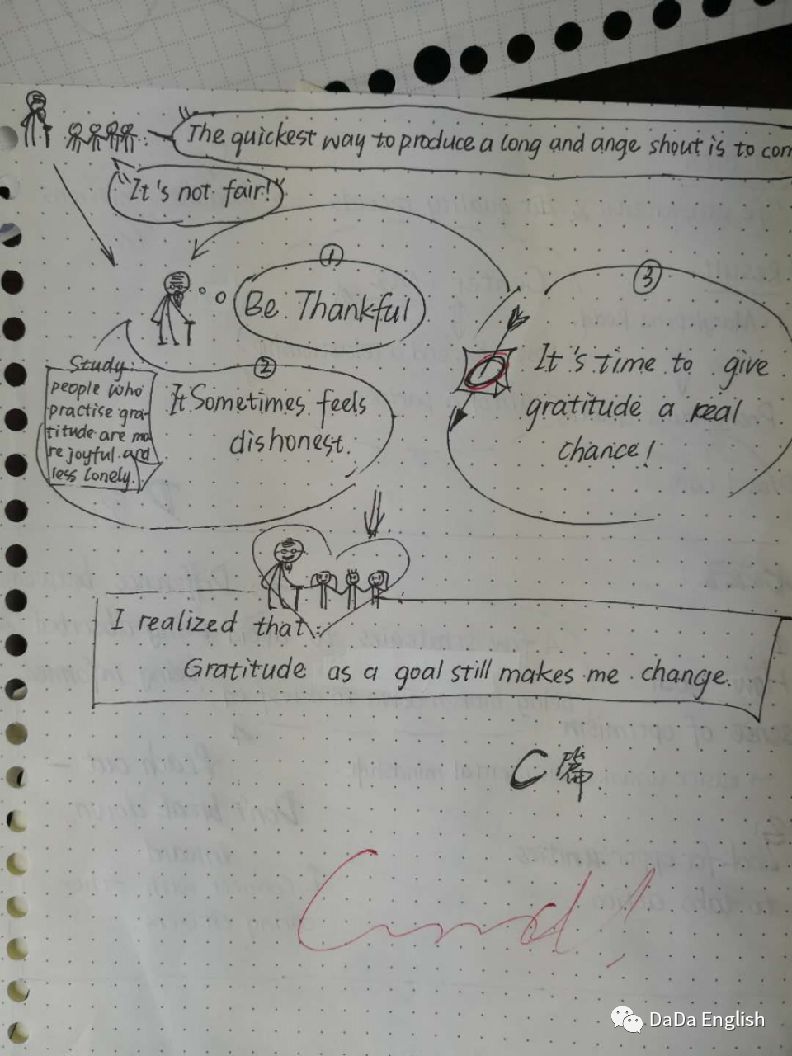 "The quickest way to produce a long and ange shout is to com
"It's not fair!"
①
Be Thankful
③
It's time to give
gratitude a real
chance!
Study:
people who
practise gra-
titude are mo
re joyful and
less lonely.
②
It Sometimes feels
dishonest.
I realized that:
Gratitude as a goal still makes me change.
C篇
Good!
DaDa English